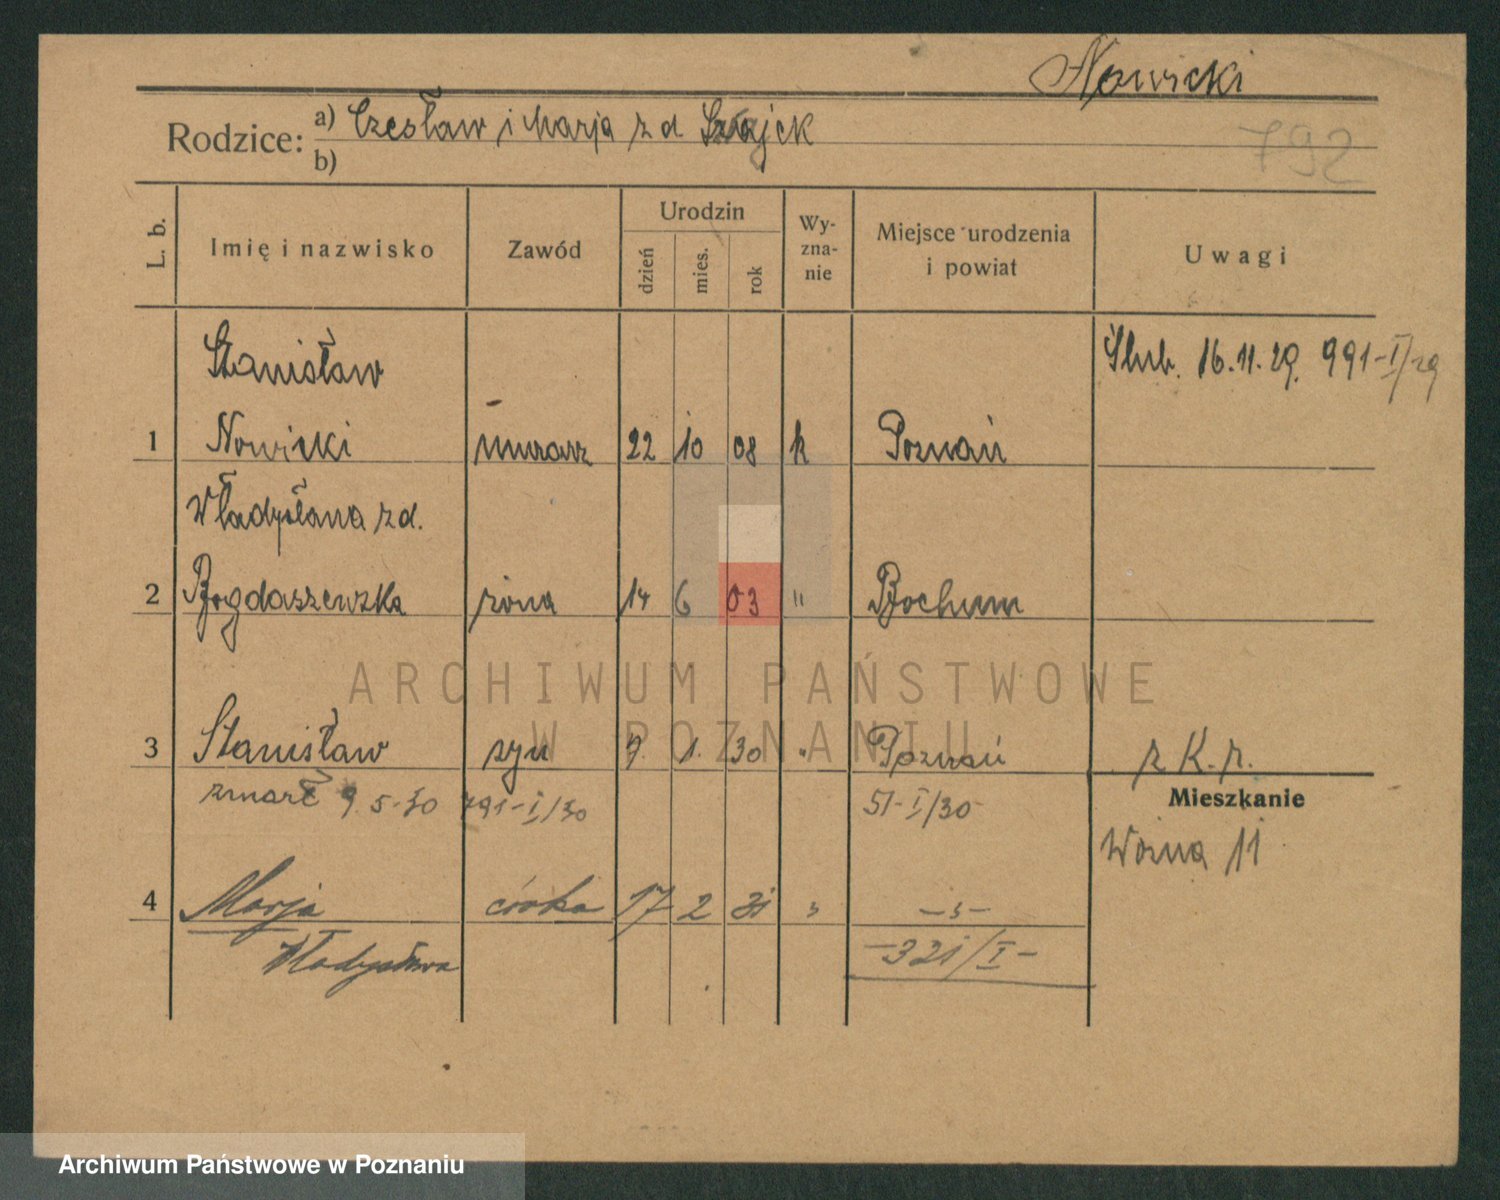 Nowicki
Rodzice: a) Czesław i Marja z d.
792
b)
L. b. Imię i nazwisko Zawód Urodzin dzień mies. rok Wy-zna-nie Miejsce urodzenia i powiat Uwagi
Stanisław Ślub. 16.11.29. 991-I/29
1 Nowicki murarz 22 10 08 k Poznań
Władysława z d.
2 Bogdaszewska żona 14 6 03 " Bochum
ARCHIWUM PAŃSTWOWE
W POZNANIU
3 Stanisław syn 7. 1. 30 " Poznań z K. r.
zmarł 9.5-30 791-I/30 51-I/30 Mieszkanie
Woźna 11
4 Marja córka 17 2 31 " -"-
Władysława -321/I-
Archiwum Państwowe w Poznaniu